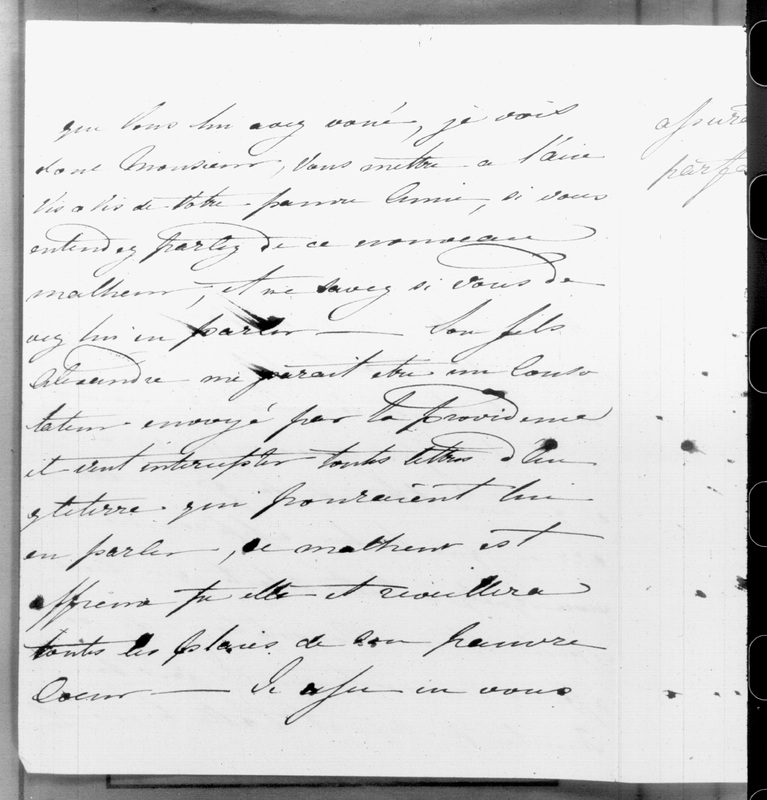 que vous lui avez voué, je vais
donc Monsieur, vous mettre a l'aise
vis a vis de votre pauvre amie, si vous
entendez parlez de ce nouveau
malheur, et ne savez si vous de
vez lui en parler — Son fils
Alexandre me parait etre un Conso
lateur envoyé par la Providence
et veut intercepter toutes lettres d'An
gleterre qui pouraient lui
en parler, ce malheur est
affreux pr elle et reveillera
toutes les plaies de son pauvre
Coeur — Je en vous
assure
parfa